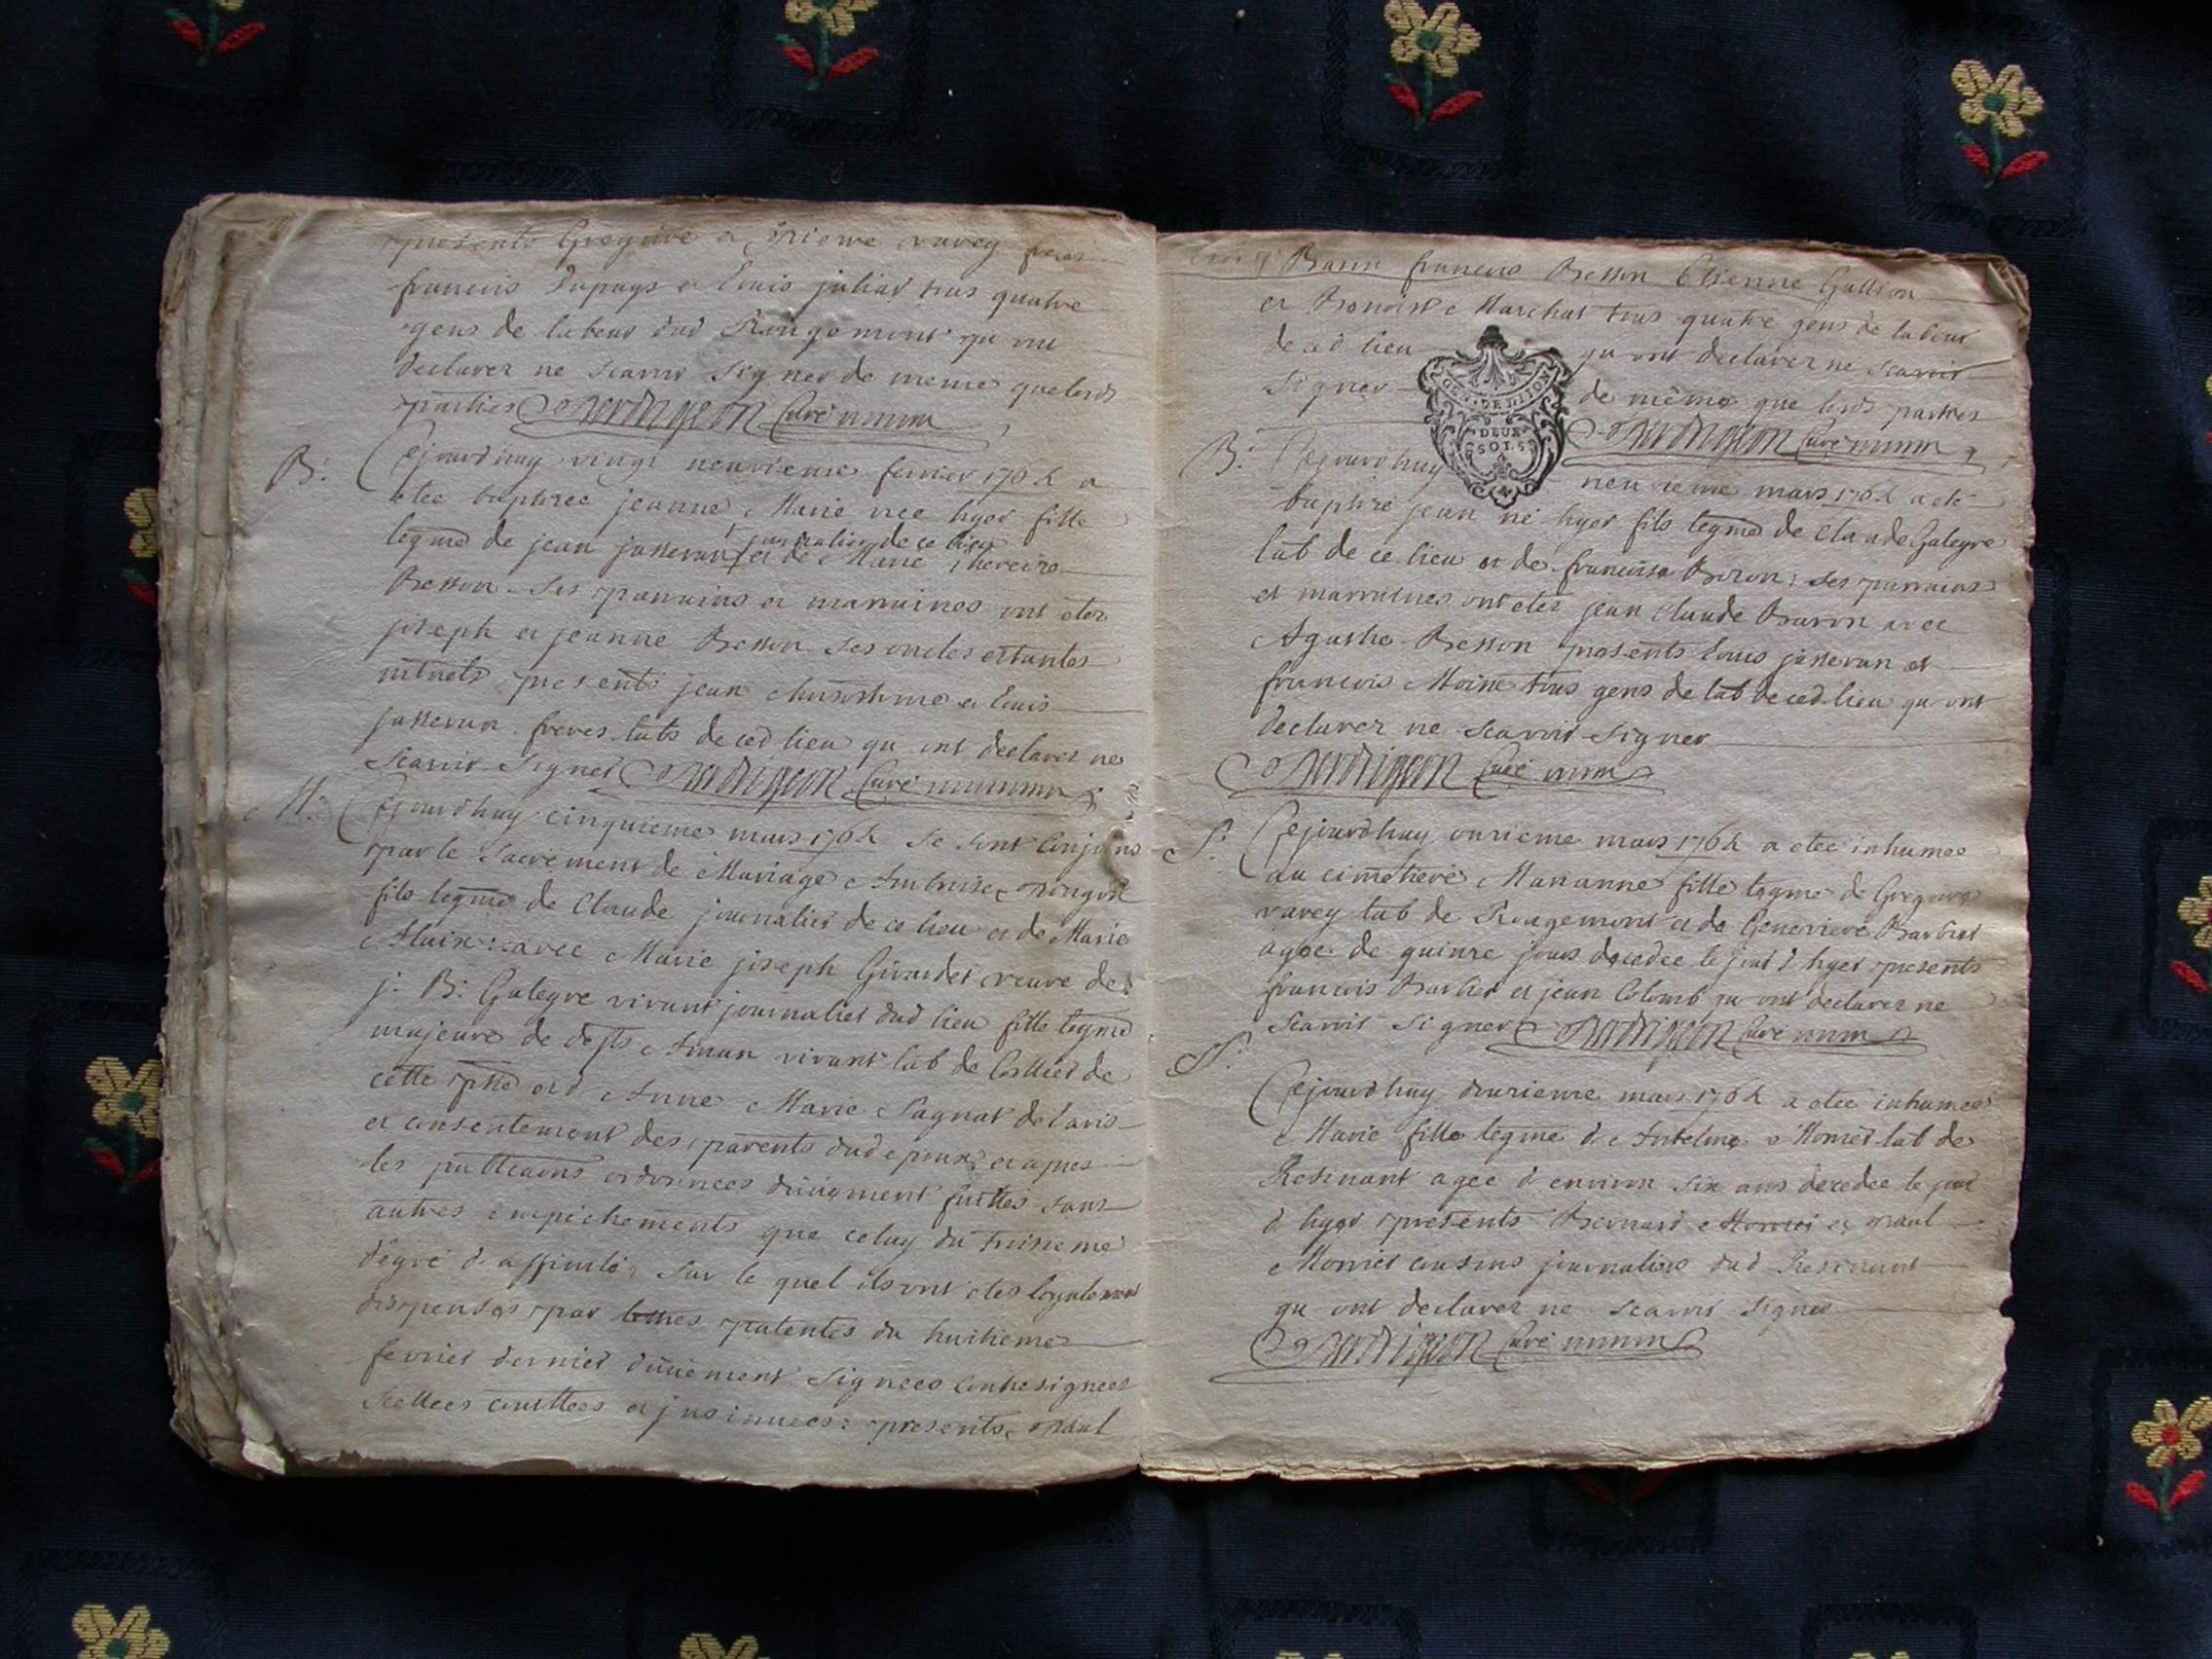 presents Gregoire et pierre varey freres
francois Dupuys et Louis juliat tous quatre
gens de labeur dud Rougemont qu ont
declarez ne scavoir signer de meme que lesd
parties Curé
B: Cejourdhuy vingt neuvieme fevrier 1764 a
etee baptisee jeanne Marie nee hyer fille
legme de jean jasseran journalier de ce lieu et de Marie thereise
Besson Ses parrains et marraines ont etez
joseph et jeanne Besson ses oncles et tantes
presents jean et Louis
jasseran freres labs de ced lieu qu ont declarez ne
Scavoir Signer Curé
M: Cejourdhuy cinquieme mars 1764 se sont conjoins
par le sacrement de Mariage Ambroise
fils legme de Claude journalier de ce lieu et de Marie
avec Marie joseph Girardet veuve de
j: B: Galegre vivant journalier dud lieu fille legme
majeure de vivant lab de de
cette psse et d Anne Marie Pagnat de lavis
et consentement des parents dud epoux et apres
les ordonnees düügment faittes sans
autres empéchements que celuy du troisieme
dégré d affinité sur le quel ils ont etes loyalement
dispenses par lettres patentes du huitieme
fevrier dernier düüement signees contresignees
Scellees et insinuees: presents paul
Baron francois Besson Etienne
et Benoist Marchat tous quatre gens de labeur
de ced lieu qu ont declarez ne scavoir
signer de même que lesd parties
GEN. DE DIJON
DEUX
SOLS
Curé
B: Cejourdhuy neuvieme mars 1764 a eté
baptisé jean né hyer fils legme de Claude Galegre
lab de ce lieu et de francoise ses parrains
et marraines ont etez jean Claude Baron avec
Agathe Besson presents Louis jasseran et
francois Moine tous gens de lab de ced lieu qu ont
declarez ne scavoir signer
Curé
S: Cejourdhuy onzieme mars 1764 a etee inhumee
au cimetiere Marianne fille legme de Gregoire
varey lab de Rougemont et de Genevieve Barbier
agee de quinze jours decedee le jour d hyer presents
francois Barbier et jean Colomb qu ont declarez ne
scavoir signer Curé
S: Cejourdhuy douzieme mars 1764 a etee inhumee
Marie fille legme d Antelme Moniet lab de
Resinant agee d environ six ans decedee le jour
d hyer presents Bernard Moniet et paul
Moniet cousins journaliers dud Resinant
qu ont declarez ne scavoir signer
Curé